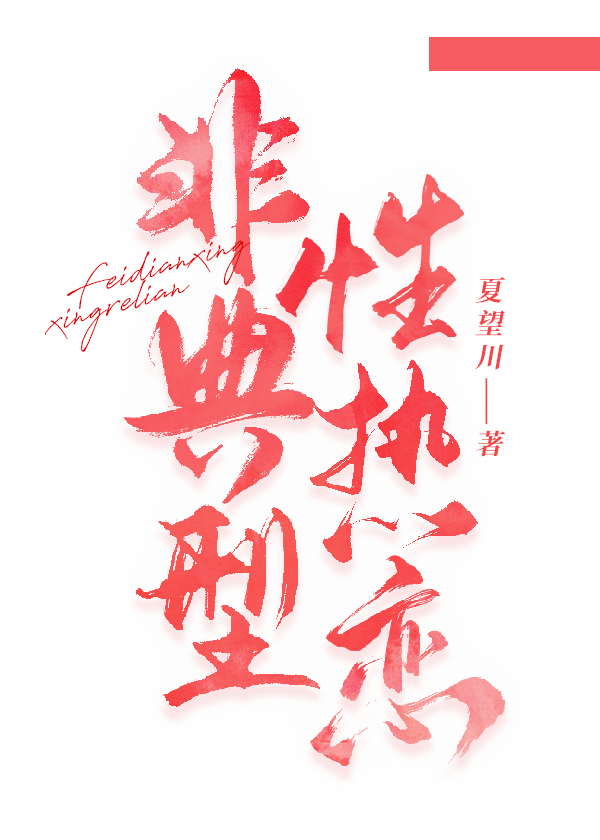 非典型
性热恋
Feidianxing
xingrelian
夏望川——著